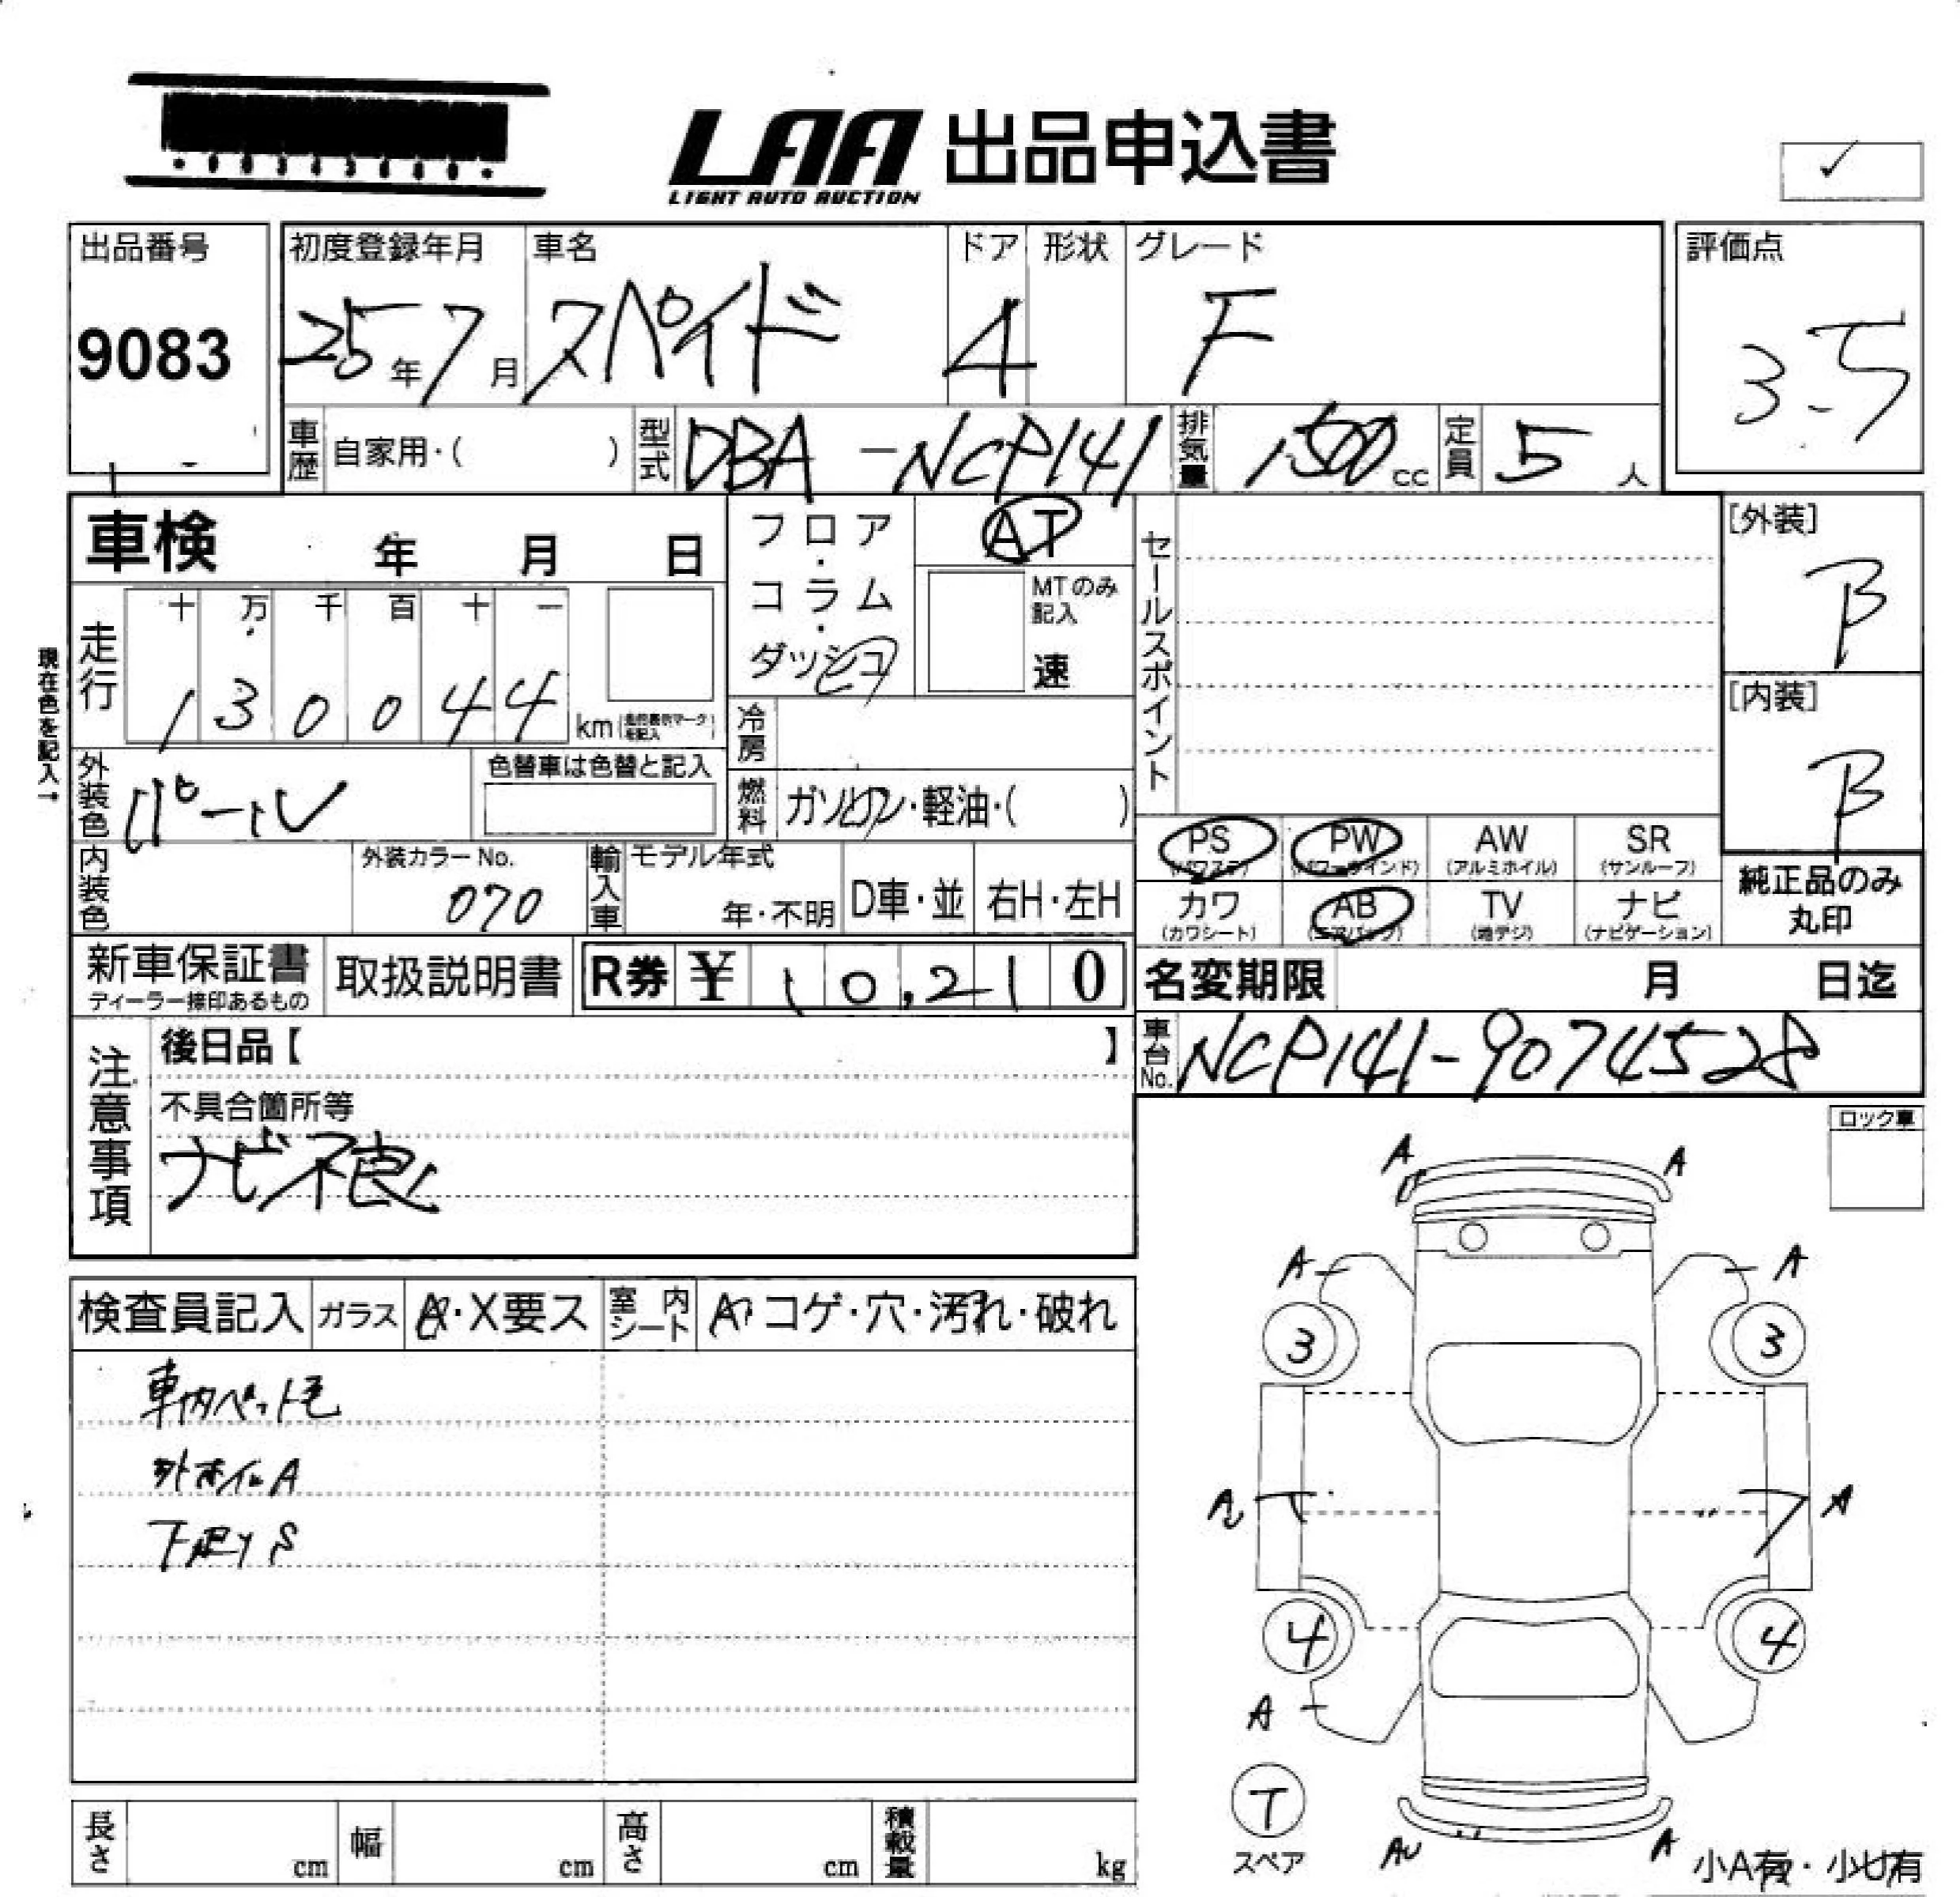 LAA 出品申込書
LIGHT AUTO AUCTION
✓
出品番号
9083
初度登録年月
25年7月
車名
スペイド
ドア
4
形状
グレード
F
評価点
3.5
車歴
自家用・( )
型式
DBA-NCP141
排気量
1500cc
定員
5人
車検 年 月 日
フロア・コラム・ダッシュ
AT
MTのみ記入
速
セールスポイント
[外装]
B
[内装]
B
現在色を記入→
走行
十 万 千 百 十 一
1 3 0 0 4 4 km
冷房
外装色
パール
色替車は色替と記入
燃料
ガソリン・軽油・( )
PS
(パワステ)
PW
(パワーウインド)
AW
(アルミホイル)
SR
(サンルーフ)
カワ
(カワシート)
AB
(エアバッグ)
TV
(地デジ)
ナビ
(ナビゲーション)
純正品のみ
丸印
内装色
外装カラーNo.
070
輸入車
モデル年式
年・不明
D車・並
右H・左H
新車保証書
ディーラー捺印あるもの
取扱説明書
R券 ¥ 10,210
名変期限 月 日迄
車台No.
NCP141-9074528
注意事項
後日品【 】
不具合箇所等
ナビ不良
ロック車
検査員記入
ガラス
A・X要ス
室内シート
コゲ・穴・汚れ・破れ
車内ペット毛
外ホイルA
下廻りS
A A
A A
3 3
A
4 4
A
T
スペア
A
小A有・小U有
長さ cm
幅 cm
高さ cm
積載量 kg